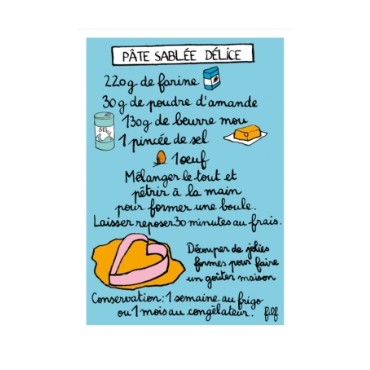 PÂTE SABLÉE DÉLICE
220g de farine
30g de poudre d'amande
130g de beurre mou
SEL
1 pincée de sel
1 œuf
Mélanger le tout et
pétrir à la main
pour former une boule.
Laisser reposer 30 minutes au frais.
Découper de jolies
formes pour faire
un goûter maison
Conservation : 1 semaine au frigo
ou 1 mois au congélateur.
filf